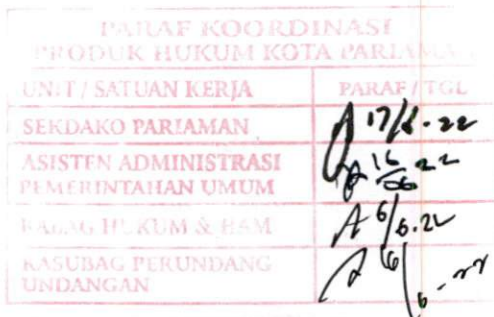 PARAF KOORDINASI
PRODUK HUKUM KOTA PARIAMAN
UNIT / SATUAN KERJA PARAF / TGL
SEKDAKO PARIAMAN 17/6-22
ASISTEN ADMINISTRASI 16/06 22
PEMERINTAHAN UMUM
KABAG HUKUM & HAM 6/6.22
KASUBAG PERUNDANG
UNDANGAN